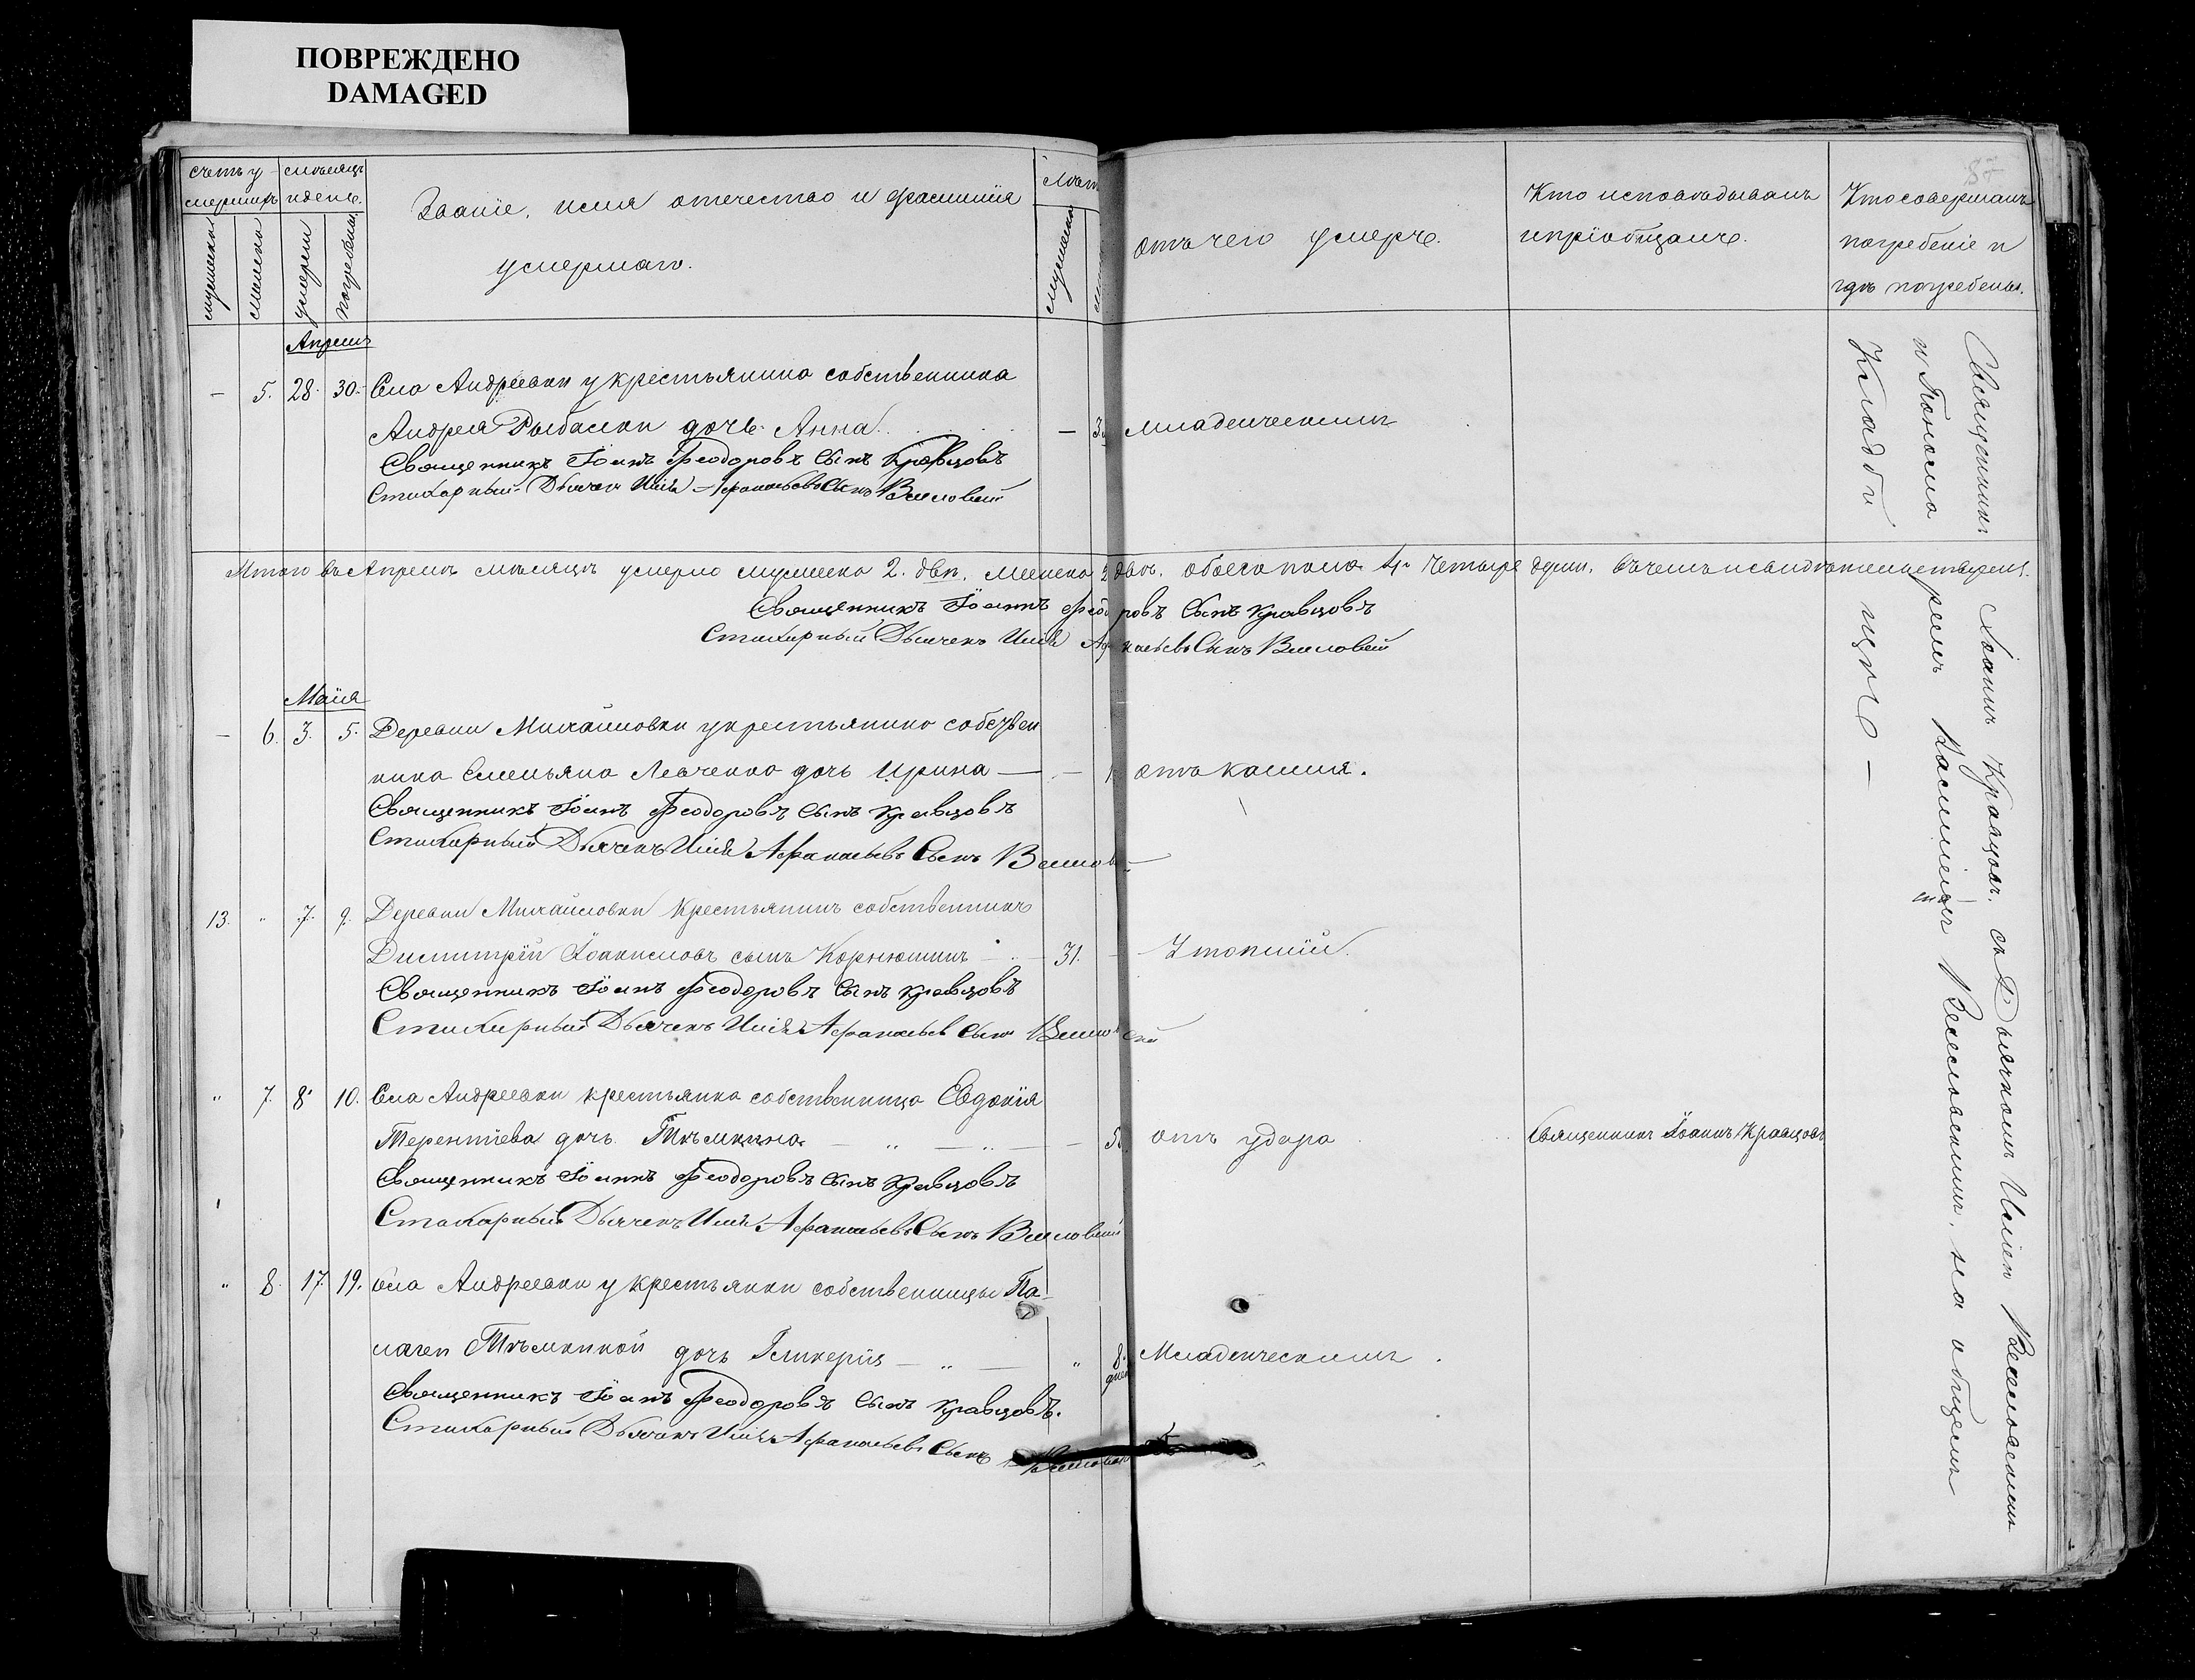 ПОВРЕЖДЕНО
DAMAGED
87
счетъ умершихъ
мѣсяцъ и день.
Званіе, имя отечество и фамилія умершаго.
Лѣта
отъ чего умеръ.
Кто исповѣдывалъ и пріобщалъ.
Кто совершалъ погребеніе и гдѣ погребены.
мужеска
женска
умерли
погребены
мужеска
Апрель
– 5. 28. 30. Села Андреевки у крестьянина собственника
Андрея Рыбалки дочь Анна. – 3 младенческимъ
Священникъ Іоаннъ Феодоровъ Сынъ Кравцовъ
Стихарный Дьячекъ Илія Афанасьевъ Сынъ
Итого въ Апрелѣ мѣсяцѣ умерло мужеска 2. двѣ, женска 2 двѣ, обоего пола 4. четыре души.
Священникъ Іоаннъ Феодоровъ Сынъ Кравцовъ
Стихарный Дьячекъ Илія Сынъ
Маія
– 6. 3. 5. Деревни Михайловки у крестьянина собствен
ника Емельяна Левченка дочь Ирина — – 1 отъ кашля.
Священникъ Іоаннъ Феодоровъ Сынъ Кравцовъ
Стихарный Дьячекъ Илія Афанасьевъ Сынъ
13. " 7. 9. Деревни Михайловки крестьянинъ собственникъ
Димитрій Іоанникіевъ сынъ Корнюшинъ – 31. – Утопшій.
Священникъ Іоаннъ Феодоровъ Сынъ Кравцовъ
Стихарный Дьячекъ Илія Афанасьевъ Сынъ
" 7. 8. 10. Села Андреевки крестьянка собственница Евдокія
Терентіева дочь Тѣмкина — " — " — – 5 отъ удара Священникъ Іоаннъ Кравцовъ
Священникъ Іоаннъ Феодоровъ Сынъ Кравцовъ
Стихарный Дьячекъ Илія Афанасьевъ Сынъ
" 8. 17. 19. Села Андреевки у крестьянки собственницы Па-
лагеи Тѣмкиной дочь Гликерія — " — " 8. дней Младенческимъ.
Священникъ Іоаннъ Феодоровъ Сынъ Кравцовъ.
Стихарный Дьячекъ Илія Афанасьевъ Сынъ
Священникъ Іоаннъ Кравцовъ, съ Дьячкомъ Иліею Веселовскимъ
и Пономаремъ Веселовскимъ, на общемъ
Кладбищѣ —